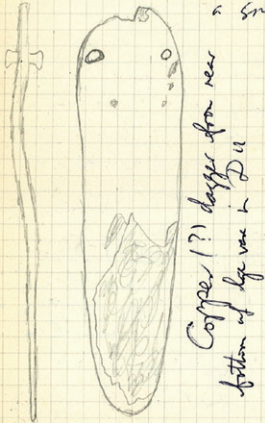 Copper (?) dagger from near
bottom of lge vase in D 11